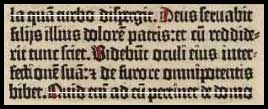 la quã turbo dispergit. Deus seruabit
filijs illius dolorē patris: et cū reddide-
rit tunc sciet. Videbūt oculi eius inter-
fectionē suā: ⁊ de furore omnipotentis
bibet. Quid enī ad eū pertinet de domo